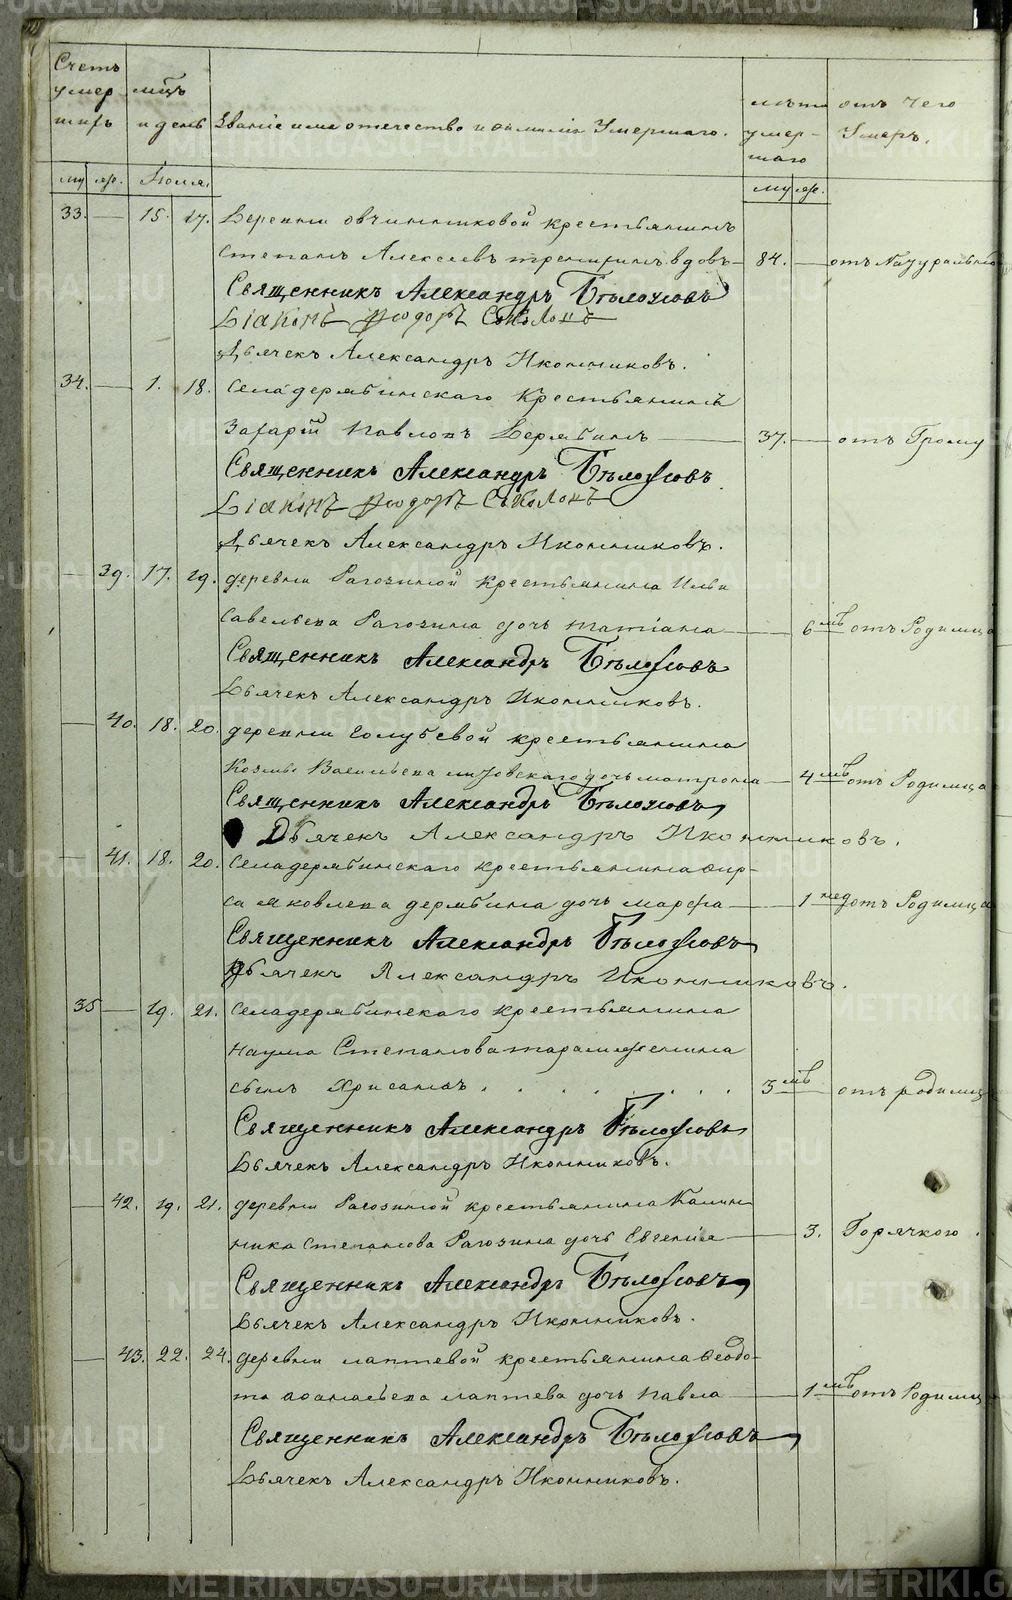 Счетъ умершихъ
мѣсяцъ и день
Званіе имя отечество и фамилія Умершаго.
лѣта умершаго
отъ чего Умеръ.
му же. Іюля. му же.
33. — 15. 17. Деревни овчинниковой крестьянинъ
Степанъ Алексѣевъ вдовъ — 84. — отъ Натуральной
Священникъ Александръ Бѣлоусовъ
Діаконъ Ѳеодоръ Соколовъ
Дьячекъ Александръ Иконниковъ.
34. — 1. 18. Села дерябинскаго Крестьянинъ
Захарій Павловъ Дерябинъ — 37. — отъ Грому
Священникъ Александръ Бѣлоусовъ
Діаконъ Ѳеодоръ Соколовъ
Дьячекъ Александръ Иконниковъ.
— 39. 17. 19. деревни Рагозиной крестьянина Ильи
Савельева Рагозина дочь татіана — 6 мѣ отъ Родимца
Священникъ Александръ Бѣлоусовъ
Дьячекъ Александръ Иконниковъ.
— 40. 18. 20. деревни Голубевой крестьянина
Козмы Васильева дочь матрона — 4 мѣ отъ Родимца
Священникъ Александръ Бѣлоусовъ
Дьячекъ Александръ Иконниковъ.
— 41. 18. 20. Села дерябинскаго крестьянина Фир-
са Яковлева дерябина дочь марфа — 1 нед отъ Родимца
Священникъ Александръ Бѣлоусовъ
Дьячекъ Александръ Иконниковъ.
35 — 19. 21. Села дерябинскаго крестьянина
Наума Степанова
сынъ Хрисанѳъ . . . . . . . 3 мѣ — отъ родимц
Священникъ Александръ Бѣлоусовъ
Дьячекъ Александръ Иконниковъ.
— 42. 19. 21. деревни Рагозиной крестьянина Калин-
ника Степанова Рагозина дочь Евгенія — 3. Горячкою.
Священникъ Александръ Бѣлоусовъ
Дьячекъ Александръ Иконниковъ.
— 43. 22. 24. деревни лаптевой крестьянина Ѳеодо-
та Аѳанасьева лаптева дочь Павла — 1 мѣ отъ Родимц
Священникъ Александръ Бѣлоусовъ
Дьячекъ Александръ Иконниковъ.
METRIKI.GASO-URAL.RU